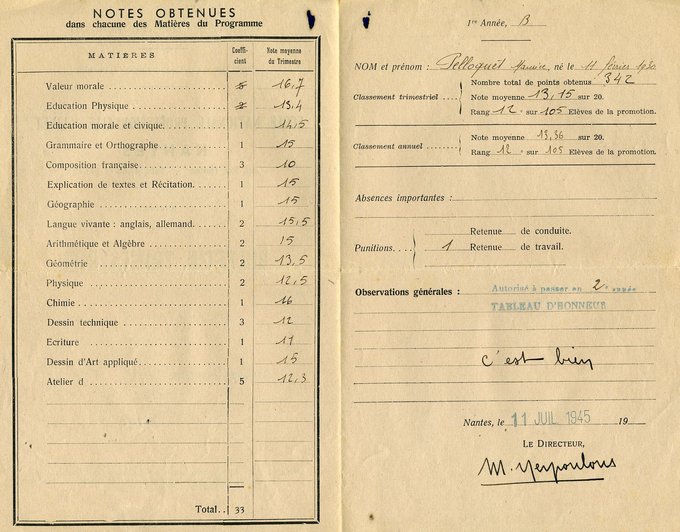 NOTES OBTENUES
dans chacune des Matières du Programme
MATIÈRES Coefficient Note moyenne du Trimestre
Valeur morale 16,7
Education Physique 13,4
Education morale et civique. 1 14,5
Grammaire et Orthographe 1 15
Composition française 3 10
Explication de textes et Récitation. 1 15
Géographie 1 15
Langue vivante : anglais, allemand. 2 15,5
Arithmétique et Algèbre 2 15
Géométrie 2 13,5
Physique 2 12,5
Chimie 1 16
Dessin technique 3 12
Ecriture 1 11
Dessin d'Art appliqué 1 15
Atelier d 5 12,3
Total.. 33
1re Année, B
NOM et prénom : Pelloquet Maurice, né le 11 février 1930
Nombre total de points obtenus 342
Classement trimestriel : Note moyenne 13,15 sur 20.
Rang 12e sur 105 Elèves de la promotion.
Note moyenne 13,36 sur 20.
Classement annuel : Rang 12e sur 105 Elèves de la promotion.
Absences importantes :
Retenue de conduite.
Punitions.... 1 Retenue de travail.
Observations générales : Autorisé à passer en 2e année
TABLEAU D'HONNEUR
c'est bien
Nantes, le 11 JUIL 1945 19
LE DIRECTEUR,